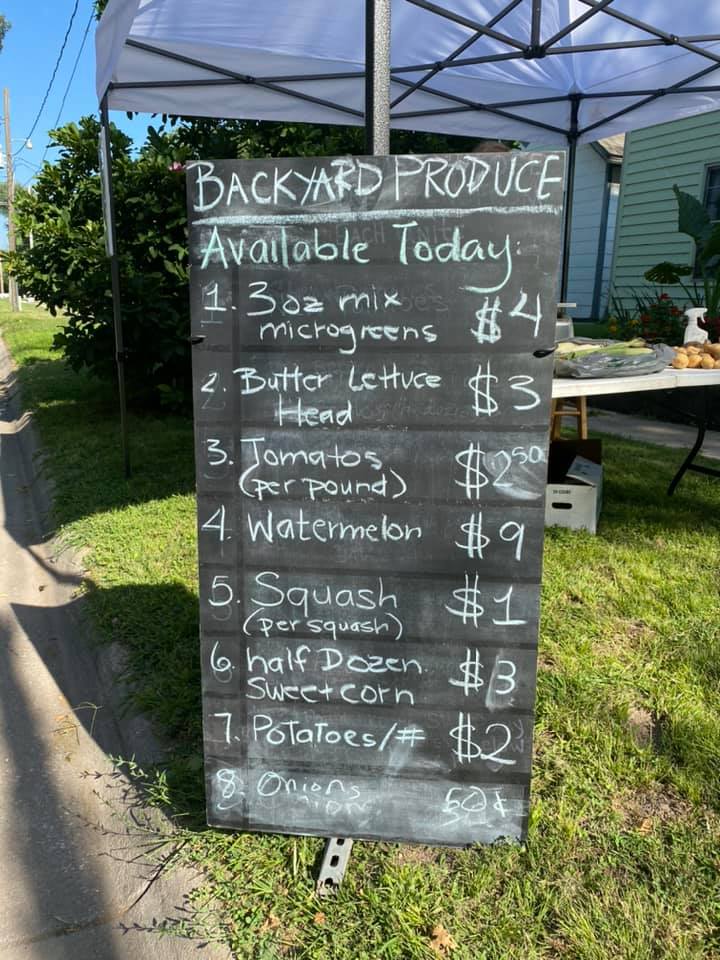 BACKYARD PRODUCE
Available Today:
1. 3oz mix $4
microgreens
2. Butter Lettuce $3
Head
3. Tomatos $2.50
(per pound)
4. Watermelon $9
5. Squash $1
(per squash)
6. half Dozen $3
Sweet corn
7. Potatoes/# $2
8. Onions 50¢